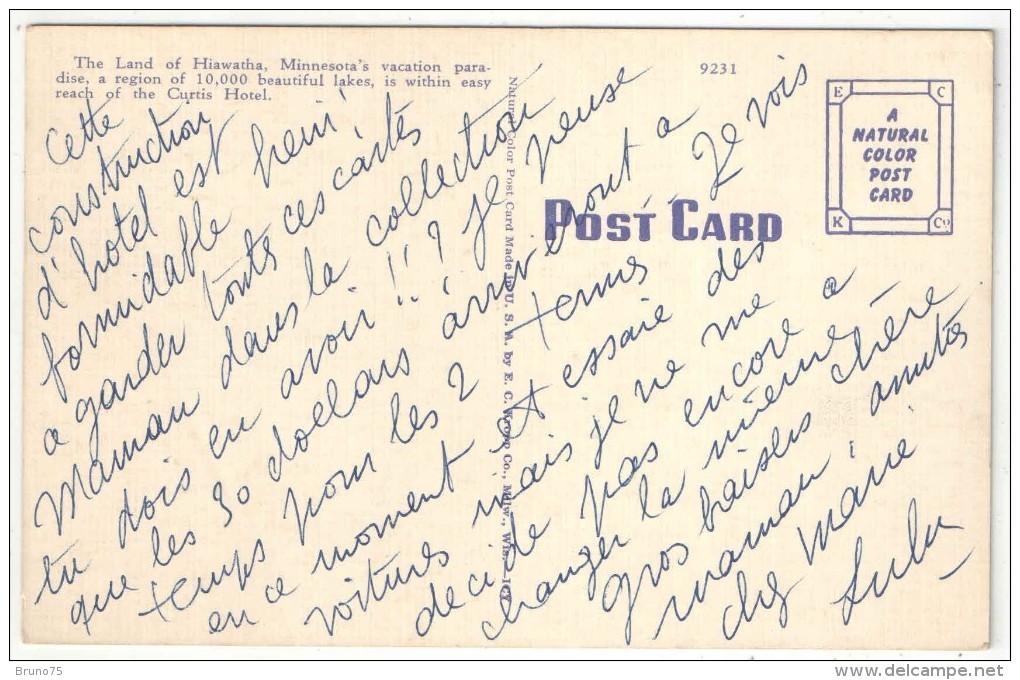 The Land of Hiawatha, Minnesota's vacation para-
dise, a region of 10,000 beautiful lakes, is within easy
reach of the Curtis Hotel.
9231
E C
A
NATURAL
COLOR
POST
CARD
K Co
POST CARD
Natural Color Post Card Made in U. S. A. by E. C. Kropp Co., Milw., Wis.
cette
construction
d'hotel est
formidable hein!
a garder toutes ces cartes
Maman dans la collection
tu dois en avoir!!? je pense
que les 30 dollars arriveront a
temps pour les 2 termes Je vois
en ce moment et essaie des
voitures mais je ne me
decide pas encore a
changer la mienne a
gros baisers chère
maman,
chez Marie
Lulu
Bruno75
http://www.delcampe.net